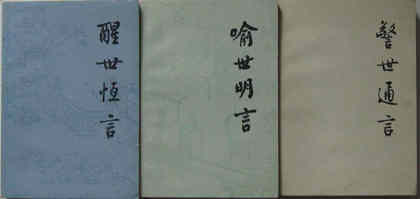 醒世恒言
喻世明言
警世通言